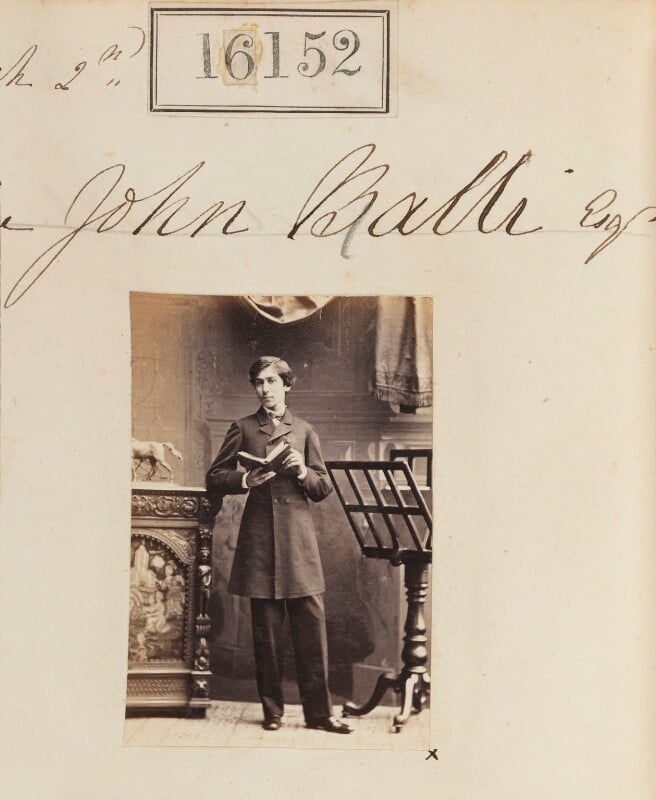 2nd
16152
John Balli Esqr
x